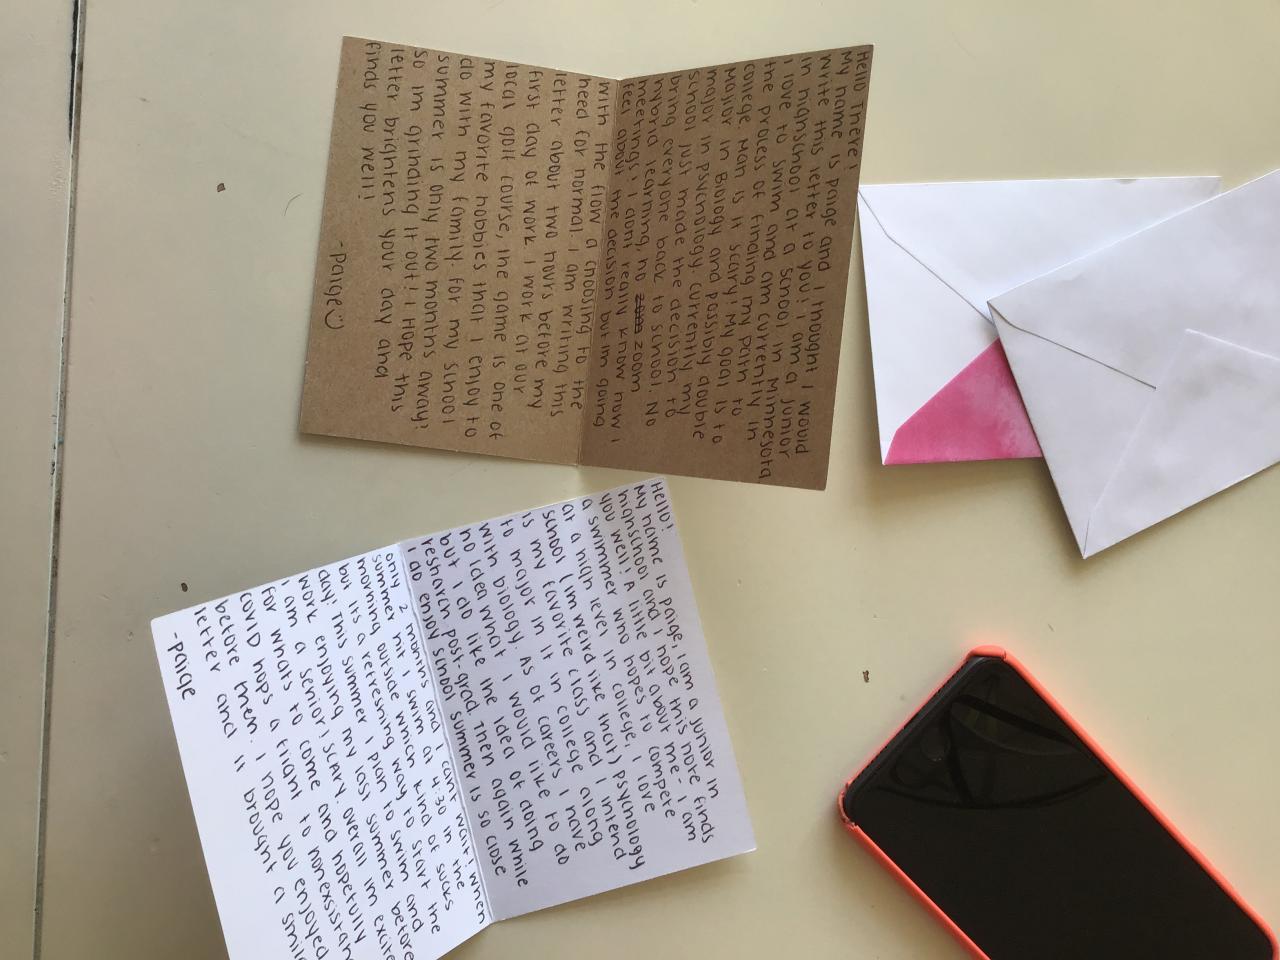 Hello There!
My name is Paige and I thought I would
write this letter to you! I am a junior
in highschool at a school in Minnesota
I love to swim and am currently in
the proless of finding my path to
college. Man is it scary! My goal is to
Major in Biology and possibly double
major in psychology. Currently my
school just made the decision to
bring everyone back to school. No
hybrid learning, no zoom
meetings! I dont really know how I
feel about the decision but im going
with the flow a choosing to the
need for normal. I am writing this
letter about two hours before my
first day of work. I work at our
local golf course, the game is one of
my favorite hobbies that I enjoy to
do with my family. For my school
summer is only two months away!
so im grinding it out! I Hope this
letter brightens your day and
finds you well!
-Paige
Hello!
My name is Paige, I am a junior in
highschool and I hope this note finds
you well! A little bit about me- I am
a swimmer who hopes to compete
at a high level in college, I love
school (im weird like that) psychology
is my favorite class and I intend
to major in it in college along
with biology. As of careers I have
no idea what I would like to do
but I do like the idea of doing
resharch post-grad. Then again while
I do enjoy school summer is so close
only 2 months and I cant wait! When
summer hits I swim at 4:30 in the
morning outside which kind of sucks
but its a refreshing way to start the
day! This summer I plan to swim and
work enjoying my last summer before
I am a senior! Scary. Overall im
for whats to come and hopefully
COVID hops a flight to
before then. I hope you enjoyed
letter and it brought a
-Paige